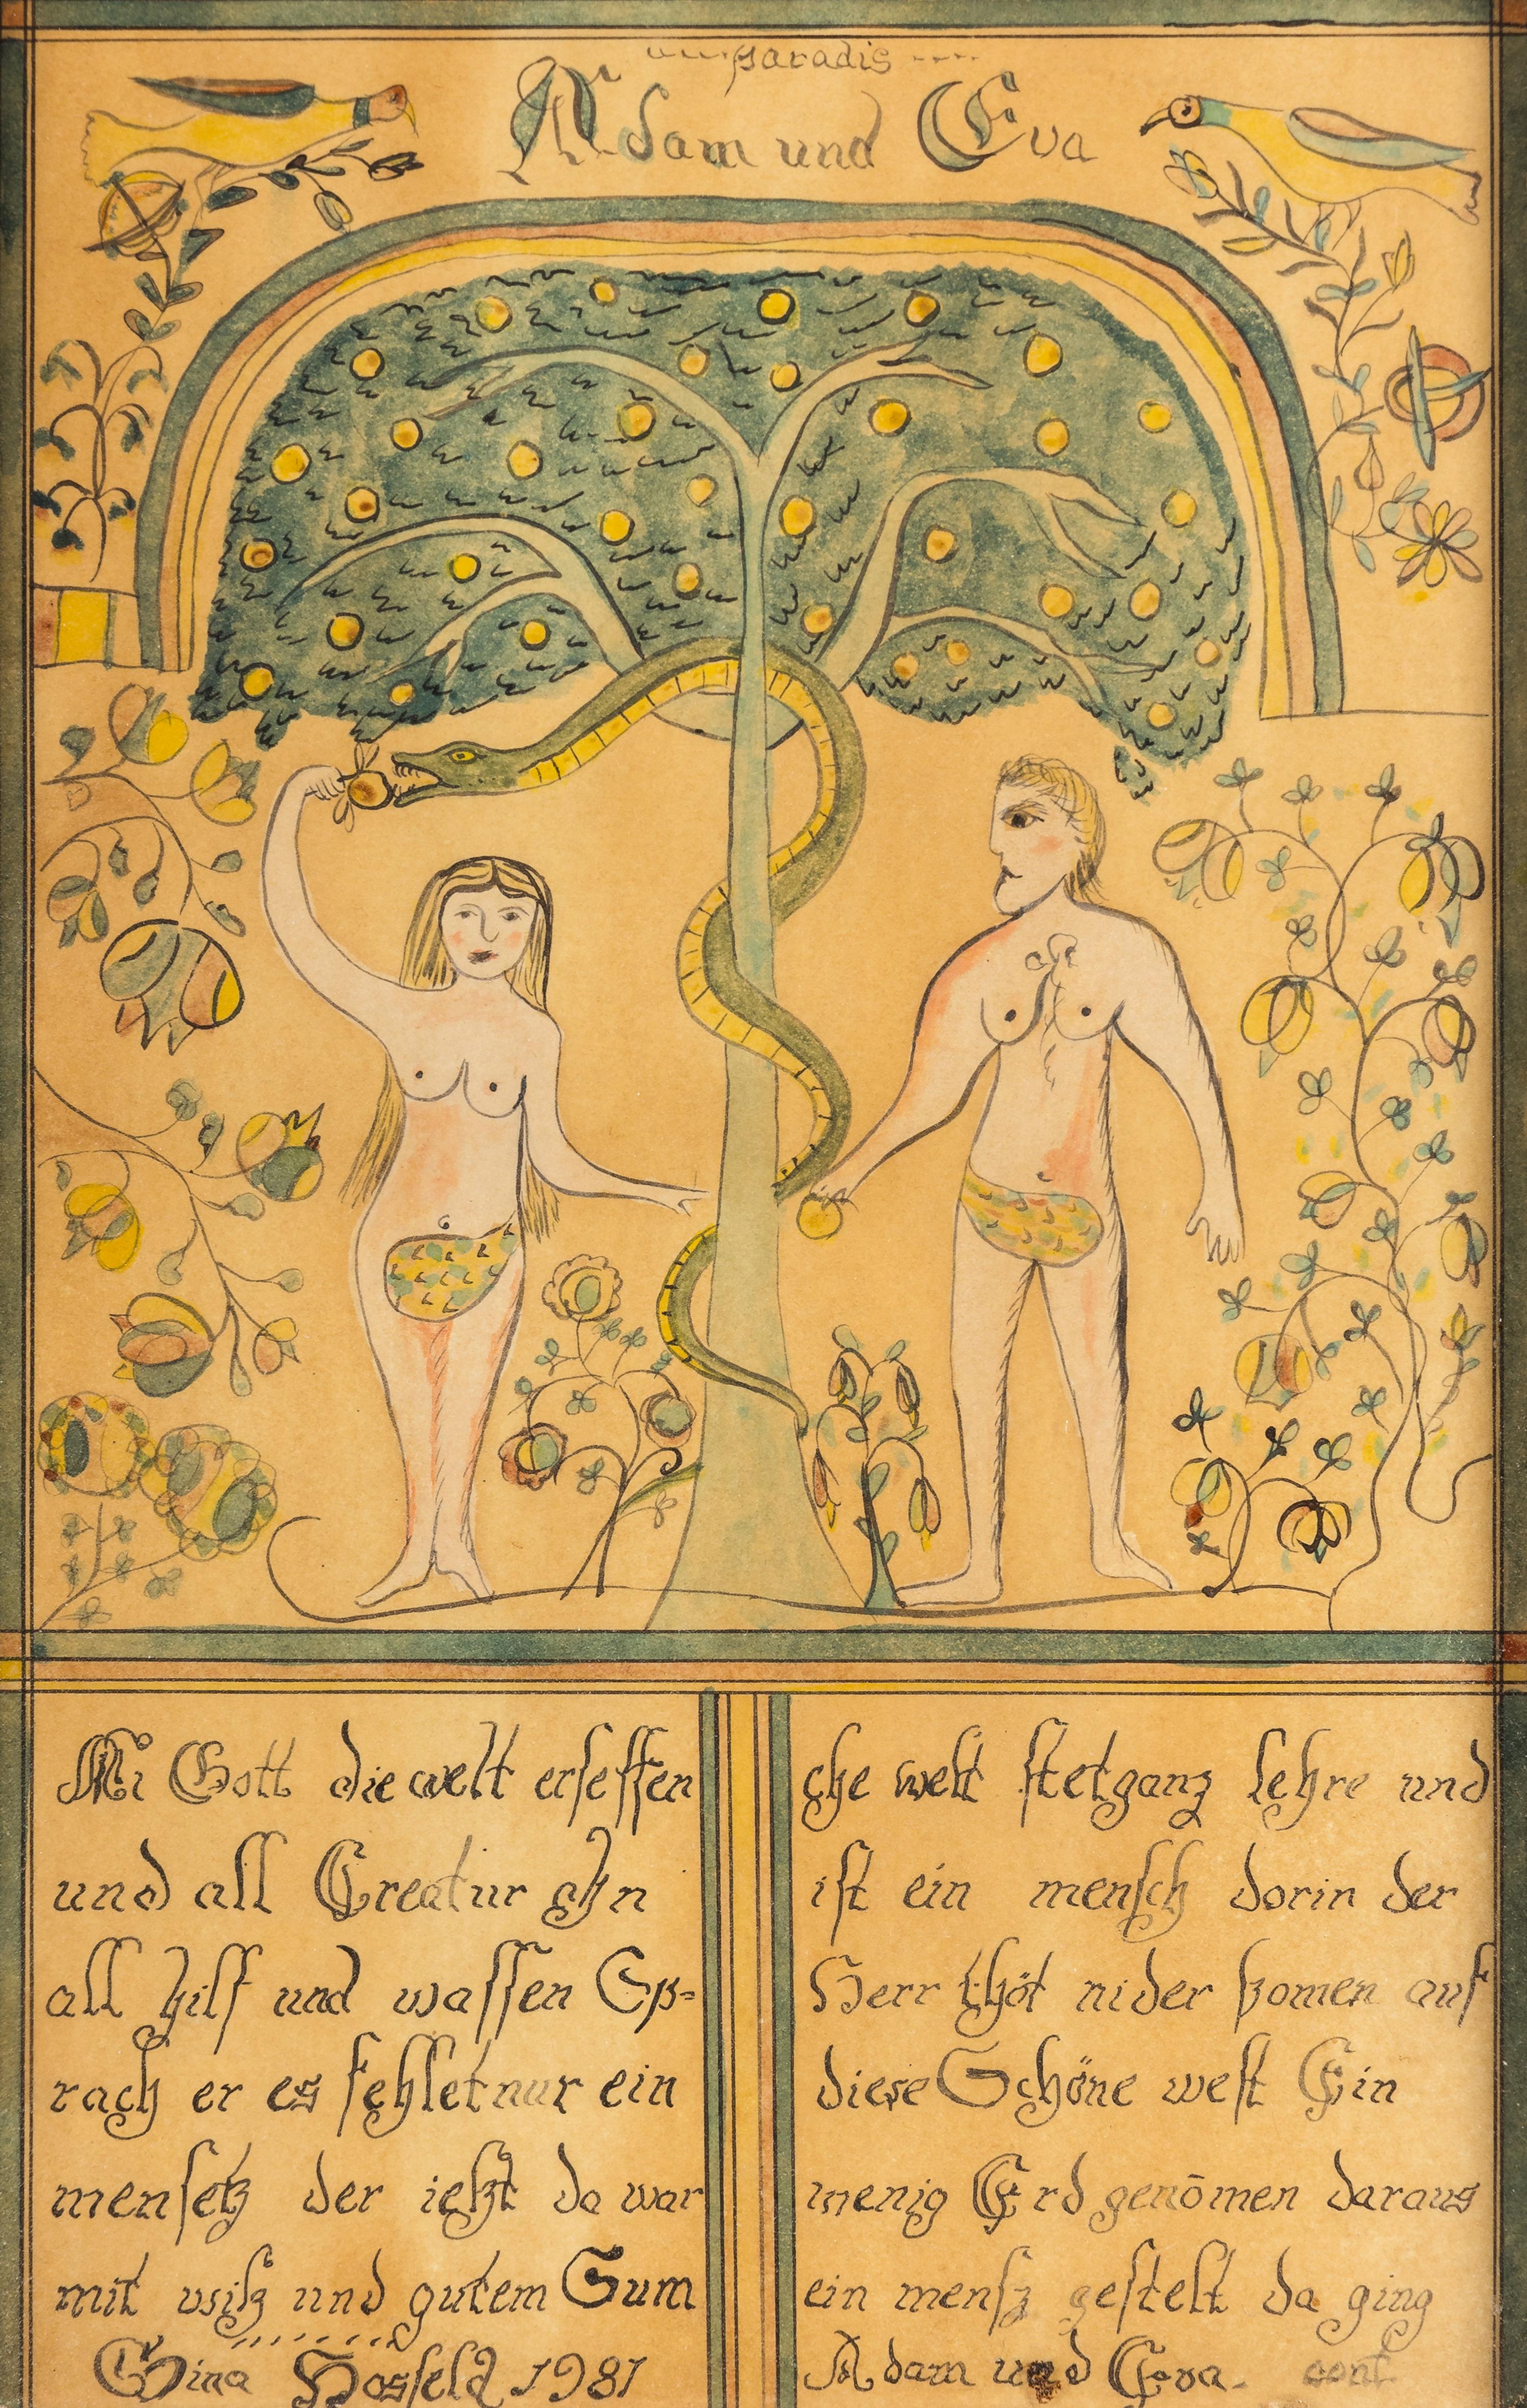 paradis
Adam und Eva
Mi Gott die welt erseffen
und all Creatur
all hilf und wassen Sp=
rach er es fehlet nur ein
mensch der ietzt da war
mit witz und gutem Sum
Gina Hosfeld 1981
che welt stet ganz lehre und
ist ein mensch dorin der
Herr thöt nider komen auf
diese Schöne welt Ein
wenig Erd genōmen daraus
ein mensz gestelt da ging
Adam und Eva. cont